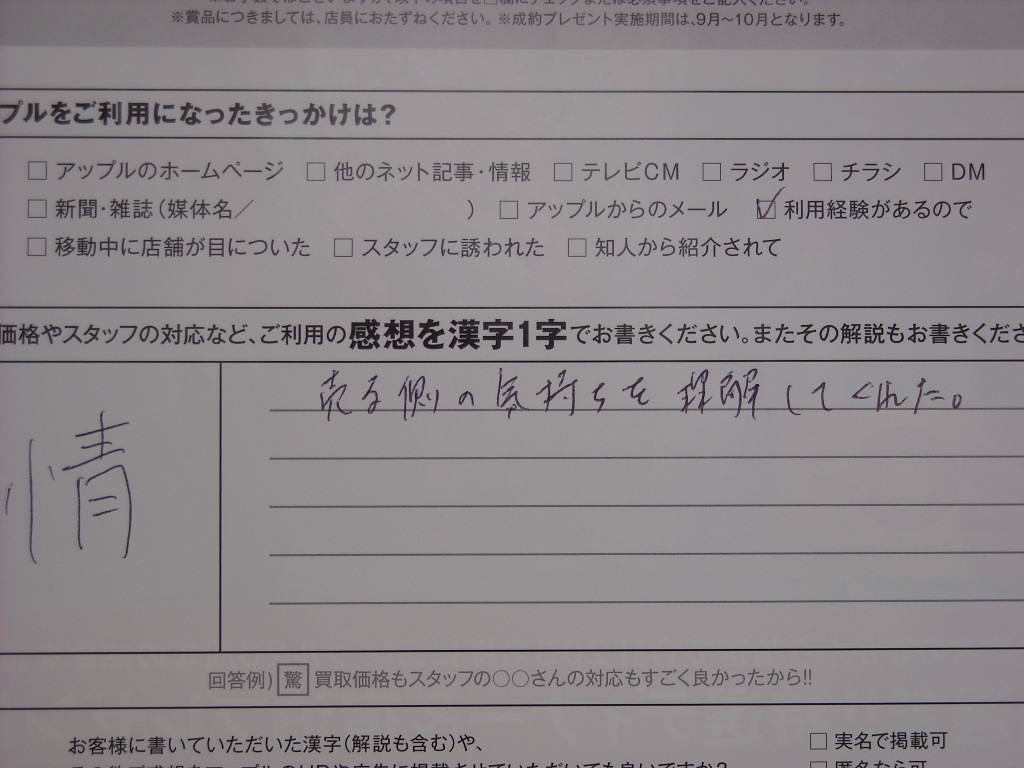 ※賞品につきましては、店員におたずねください。※成約プレゼント実施期間は、9月～10月となります。
プルをご利用になったきっかけは？
□ アップルのホームページ □ 他のネット記事・情報 □ テレビCM □ ラジオ □ チラシ □ DM
□ 新聞・雑誌（媒体名／ ） □ アップルからのメール ☑ 利用経験があるので
□ 移動中に店舗が目についた □ スタッフに誘われた □ 知人から紹介されて
価格やスタッフの対応など、ご利用の感想を漢字1字でお書きください。またその解説もお書きくださ
売る側の気持ちを理解してくれた。
情
回答例） 驚 買取価格もスタッフの○○さんの対応もすごく良かったから!!
お客様に書いていただいた漢字（解説も含む）や、
□ 実名で掲載可